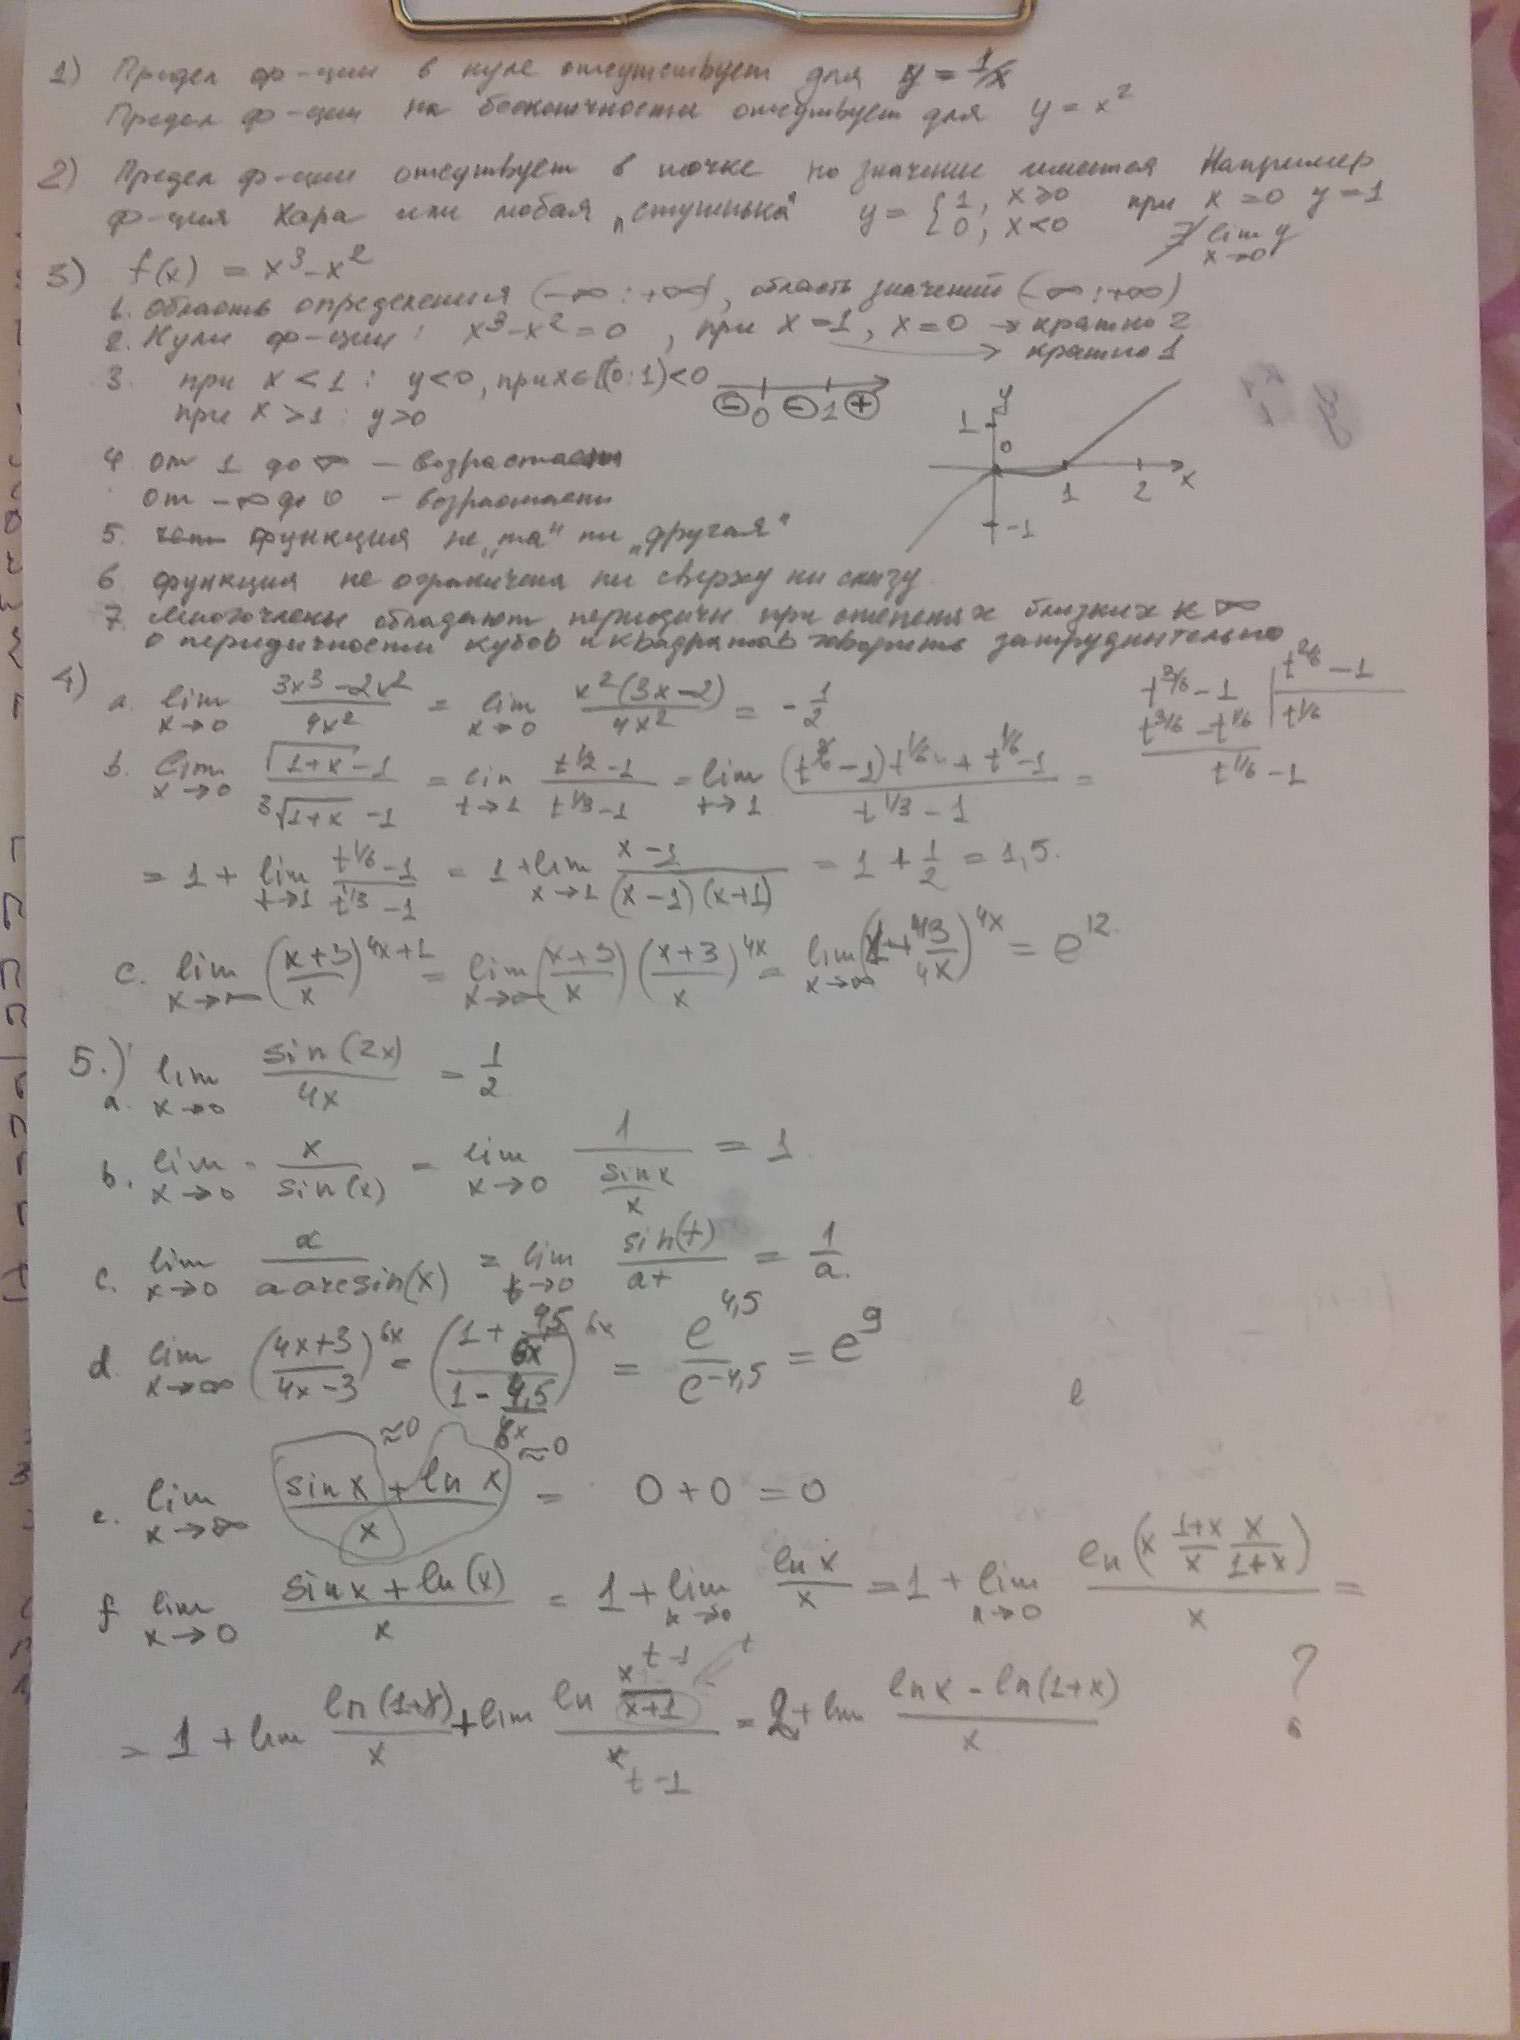 1) Предел ф-ции в нуле отсутствует для y = 1/x
Предел ф-ции на бесконечности отсутствует для y = x²
2) Предел ф-ции отсутствует в точке но значение имеется Например
ф-ция Хара или любая „ступенька" y = { 1, x ⩾ 0 при x = 0 y = 1
0, x < 0 ∄ lim y
x→0
3) f(x) = x³ - x²
1. Область определения (-∞ : +∞), область значений (-∞ : +∞)
2. Нули ф-ции : x³ - x² = 0 , при x = 1, x = 0 → кратно 2
→ кратно 1
3. при x < 1 : y < 0, при x ∈ (0 : 1) < 0 ⊖ 0 ⊖ 1 ⊕
при x > 1 : y > 0
y 1 0 1 2 x -1
4 от 1 до ∞ — возрастает
от -∞ до 0 — возрастает
5. функция не „та" ни „другая"
6 функция не ограничена ни сверху ни снизу
7. Многочлены обладают периодичн при степенях близких к ∞
о перидичности кубов и квадратов говорить затруднительно
4) a. lim x→0 (3x³ - 2x²)/(4x²) = lim x→0 x²(3x - 2)/(4x²) = - 1/2
t^(3/6) - 1 | t^(2/6) - 1
t^(3/6) - t^(1/6) | t^(1/6)
t^(1/6) - 1
b. lim x→0 (√(1+x) - 1)/(³√(1+x) - 1) = lim t→1 (t^(1/2) - 1)/(t^(1/3) - 1) = lim t→1 ((t^(2/6) - 1) t^(1/6) + t^(1/6) - 1)/(t^(1/3) - 1) =
= 1 + lim t→1 (t^(1/6) - 1)/(t^(1/3) - 1) = 1 + lim x→1 (x - 1)/((x - 1)(x + 1)) = 1 + 1/2 = 1,5.
c. lim x→∞ ((x+3)/x)^(4x+1) = lim x→∞ ((x+3)/x) ((x+3)/x)^(4x) = lim x→∞ (1 + 4·3/(4x))^(4x) = e^12.
5.) a. lim x→0 sin(2x)/(4x) = 1/2
b. lim x→0 x/sin(x) = lim x→0 1/(sin x/x) = 1
c. lim x→0 x/(a arcsin(x)) = lim t→0 sin(t)/(at) = 1/a.
d. lim x→∞ ((4x+3)/(4x-3))^(6x) = ((1 + 4,5/(6x))/(1 - 4,5/(6x)))^(6x) = e^(4,5)/e^(-4,5) = e^9
e
e. lim x→∞ (sin x + ln x)/x = 0 + 0 = 0
≈0 ≈0
f. lim x→0 (sin x + ln(x))/x = 1 + lim x→0 ln x/x = 1 + lim x→0 ln(x (1+x)/x x/(1+x))/x =
= 1 + lim ln(1+x)/x + lim ln (x/(x+1))/x = 2 + lim (ln x - ln(1+x))/x ?
t-1 t
t-1